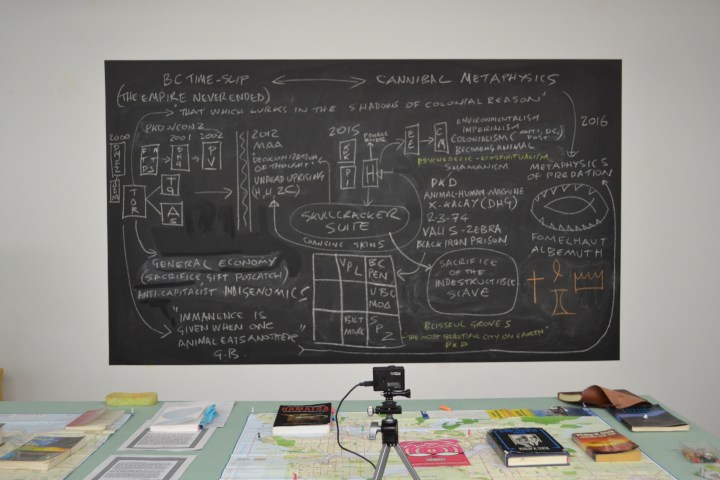 BC TIME-SLIP
(THE EMPIRE NEVER ENDED)
CANNIBAL METAPHYSICS
"THAT WHICH LURKS IN THE SHADOWS OF COLONIAL REASON"
2016
2000
PKD NCON2
2001
2002
PV
TOR
AS
2012
MAA
DECOLONIZATION
OF THOUGHT
UNDEAD UPRISING
2015
H
ENVIRONMENTALISM
IMPERIALISM
COLONIALISM
BECOMING ANIMAL
PSYCHEDELIC
SHAMANISM
PKD
ANIMAL-HUMAN-MACHINE
X-KALAY (DHG)
2-3-74
VALIS-ZEBRA
BLACK IRON PRISON
METAPHYSICS
OF PREDATION
FOMELHAUT
ALBEMUTH
SKULLCRACKER
SUITE
CHANGING SKINS
VPL
BC
PEN
UBC
MOA
SPZ
SACRIFICE
OF THE
INDESTRUCTIBLE
SLAVE
GENERAL ECONOMY
(SACRIFICE GIFT POTLATCH)
ANTI-CAPITALIST INDIGENOMICS
"IMMANENCE IS
GIVEN WHEN ONE
ANIMAL EATS ANOTHER"
G.B.
BLISSFUL GROVES
"THE MOST BEAUTIFUL CITY ON EARTH"
PKD